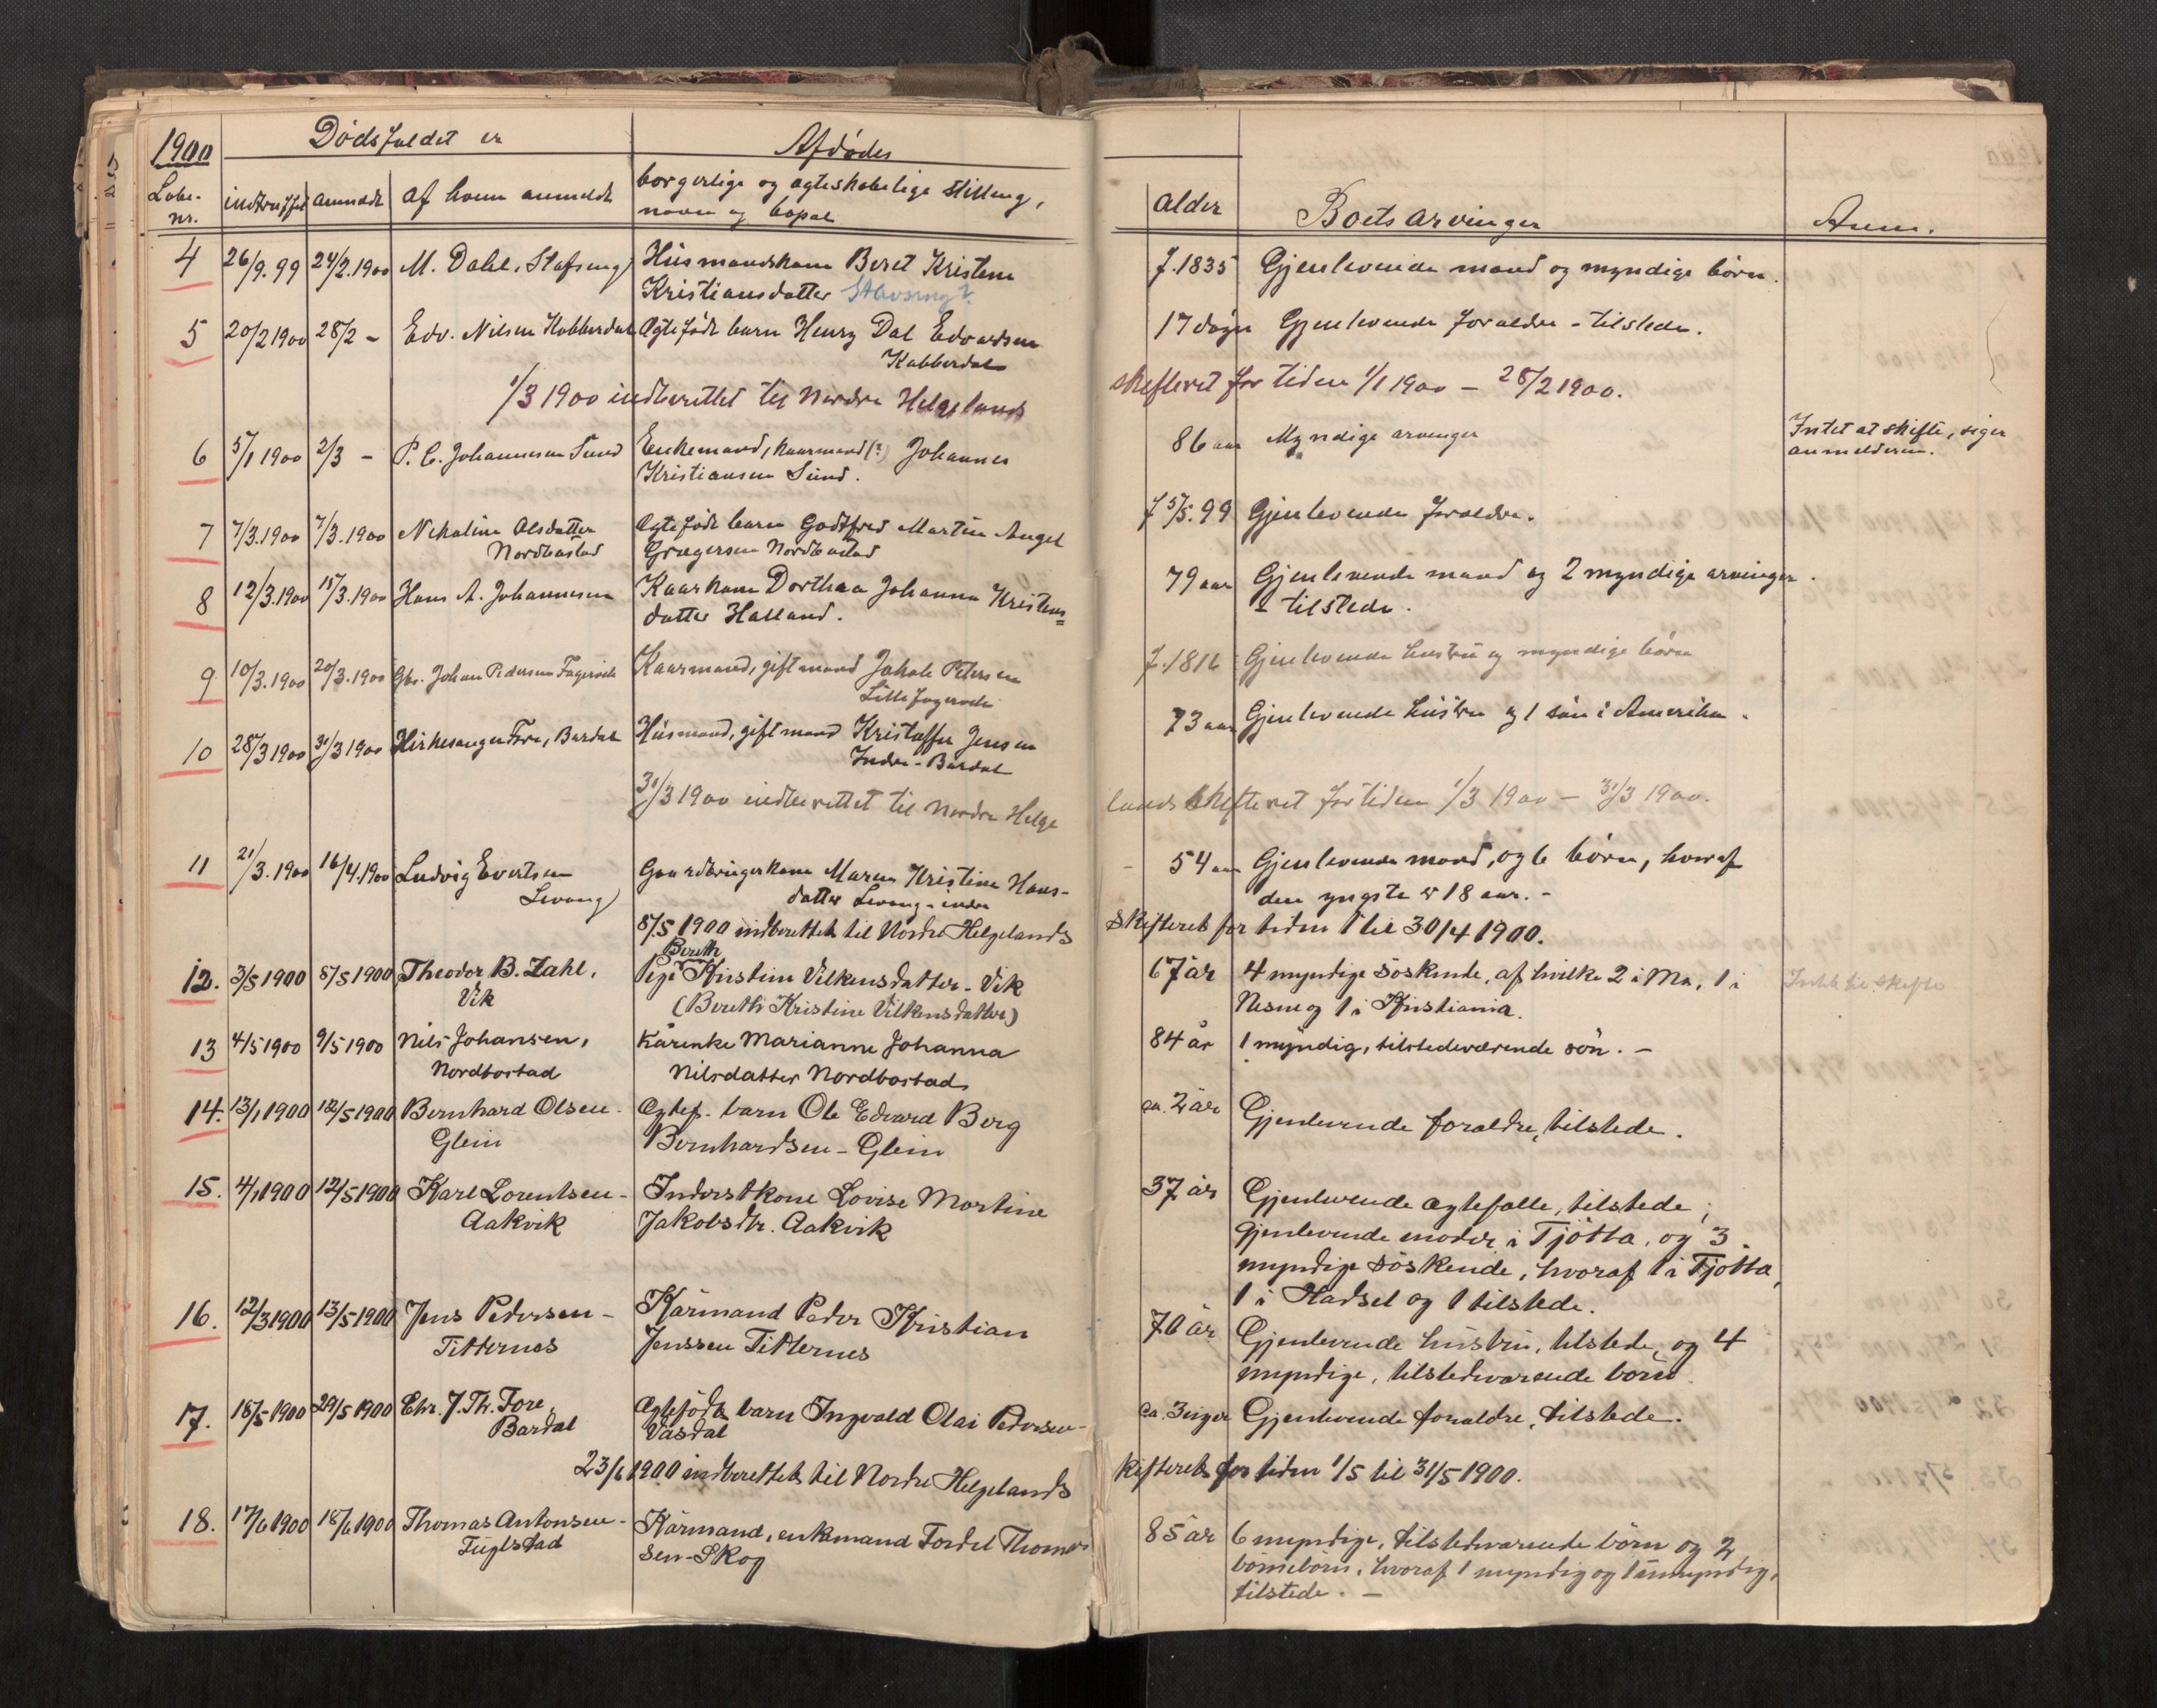 1900
Dødsfaldet er
Afdødes
Løbe-
nr.
indtruffet
anmeldt
af hvem anmeldt
borgerlige og ægteskabelige stilling,
navn og bopæl
alder
Boets arvinger
Anm.
4 26/9.99 24/2.1900 M. Dahl, Stafseng Husmandskone Beret Kristine f.1835 Gjenlevende mand og myndige børn.
Kristiansdatter Stavseng?
5 20/2 1900 28/2 - Edv. Nilsen Kobberdal Ægtefødt barn Henry Dal Edvardsen 17 døgn Gjenlevende forældre - tilstede.
Kobberdal
1/3 1900 indberettet til Nordre Helgelands skifteret for tiden 1/1 1900 - 28/2 1900.
6 5/1 1900 2/3 - P. C. Johannesen Sund Enkemand, kaarmand (?) Johannes 86 aar Myndige arvinger Intet at skifte, siger
Kristiansen Sund. anmelderen.
7 7/3.1900 7/3.1900 Nikoline Olsdatter Ægtefødt barn Godtfred Martin Angel f 5/5.99 Gjenlevende forældre.
Nordbostad Grægersen Nordbostad
8 12/3.1900 15/3.1900 Hans A. Johannesen Kaarkone Dorthea Johanna Kristens= 79 aar Gjenlevende mand og 2 myndige arvinger.
datter Halland. - tilstede.
9 10/3.1900 20/3.1900 Gbr. Johan Pedersen Fagervik Kaarmand, gift mand Jakob Petersen f.1816 Gjenlevende hustru og myndige børn
Lille Fagervik
10 28/3 1900 31/3 1900 Kirkesanger Fore, Bardal Husmand, gift mand Kristoffer Jensen 73 aar Gjenlevende hustru og 1 søn i Amerika.
Indre-Bardal
31/3 1900 indberettet til Nordre Helge lands skifteret for tiden 1/3 1900 - 31/3 1900.
11 21/3.1900 16/4.1900 Ludvig Evertsen Gaardbrugerkone Maren Kristine Hans- 54 aar Gjenlevende mand, og 6 børn, hvoraf
Levang datter Levang-indre den yngste er 18 aar. -
8/5 1900 indberettet til Nordre Helgelands skifteret for tiden 1 til 30/4 1900.
Bereth
12. 3/5 1900 8/5 1900 Theodor B. Zahl, Pige Kristine Vilkensdatter - Vik 67 år 4 myndige søskende, af hvilke 2 i Mo, 1 i Intet til skifte
Vik (Bereth Kristine Vilkensdatter) Nesne og 1 i Kristiania.
13 4/5 1900 9/5 1900 Nils Johansen, Kårenke Marianne Johanna 84 år 1 myndig, tilstedeværende søn. -
Nordbostad Nilsdatter Nordbostad
14. 13/1 1900 12/5 1900 Bernhard Olsen - Ægtef. barn Ole Edvard Berg ca. 2 år Gjenlevende forældre, tilstede.
Glein Bernhardsen - Glein
15. 4/1 1900 12/5 1900 Karl Lorentsen - Inderstkone Lovise Martine 37 år Gjenlevende ægtefælle, tilstede;
Aakvik Jakobsdtr. Aakvik gjenlevende moder i Tjøtta, og 3
myndige søskende, hvoraf 1 i Tjøtta,
1 i Hadsel og 1 tilstede.
16. 12/3 1900 13/5 1900 Jens Pedersen - Kårmand Peder Kristian 70 år Gjenlevende hustru, tilstede, og 4
Titternes Jenssen Titternes myndige, tilstedeværende børn.
17. 18/5 1900 29/5 1900 Chr. J. Th. Fore, Ægtefødt barn Ingvald Olai Pedersen - ca. 3 uger Gjenlevende forældre, tilstede.
Bardal Vasdal
23/6 1900 indberettet til Nordre Helgelands skifteret for tiden 1/5 til 31/5 1900.
18. 17/6 1900 18/6 1900 Thomas Antonsen - Kårmand, enkemand Tordel Thomas 85 år 6 myndige, tilstedeværende børn og 2
Fuglstad sen - Skog børnebørn, hvoraf 1 myndig og 1 umyndig,
tilstede. -